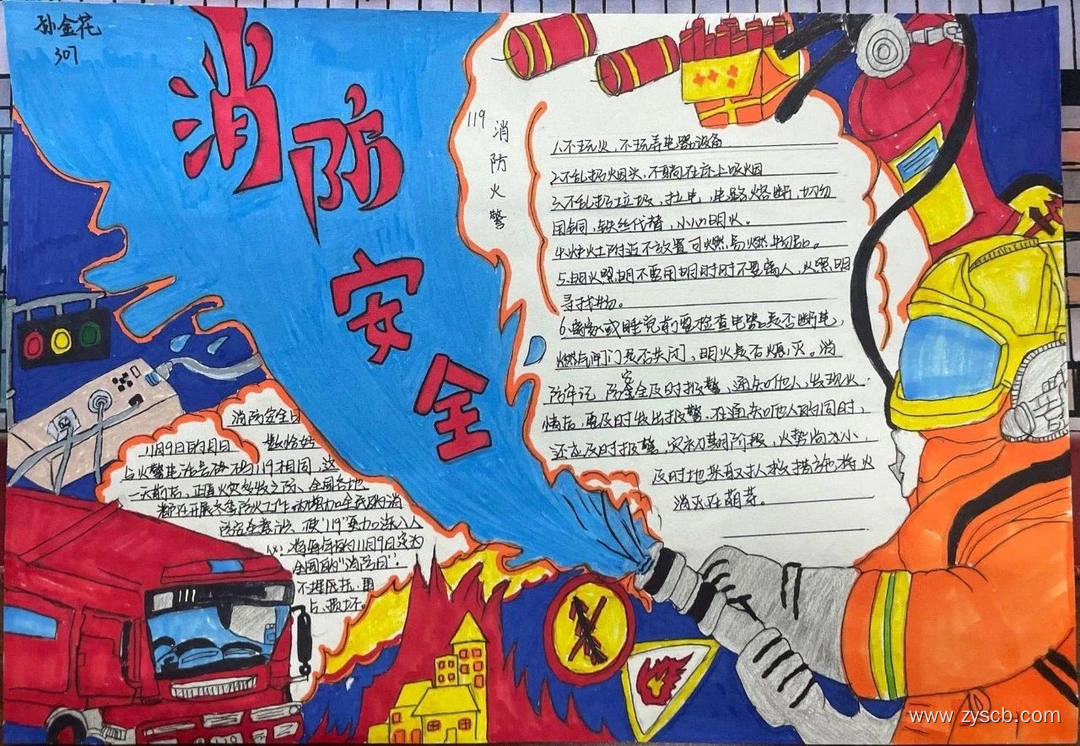 孙金花
307
消防安全
119
消防火警
1.不玩火,不玩弄电器设备
2.不乱扔烟头,不躺在床上吸烟
3.不乱扔垃圾,拉电,电路熔断,切勿
用铜,铁丝代替,小心明火。
4.炉灶附近不放置可燃易燃物品。
5.明火照明不要用明时时不要离人,火照明
寻找物。
6.离家或睡觉前要检查电器是否断电,
燃气阀门是否关闭,明火是否熄灭。消
防牢记 防案全及时报警 通知他人,发现火
情后,要及时发出报警,在通知他人的同时,
还应及时报警,灾初期阶段,火势尚为小,
及时地采取扑救措施将火
消灭在萌芽。
消防安全日
11月9日的月日 数恰好
与火警电话号码119相同,这
一天前后,正值火灾多发之际、全国各地
都在开展冬季防火工作。为增加全民的消
防安全意识、使"119"更加深入人
心,将每年的11月9日定为
全国的"消防日"。
不埋压、圈
占、损坏
119
www.zyscb.com